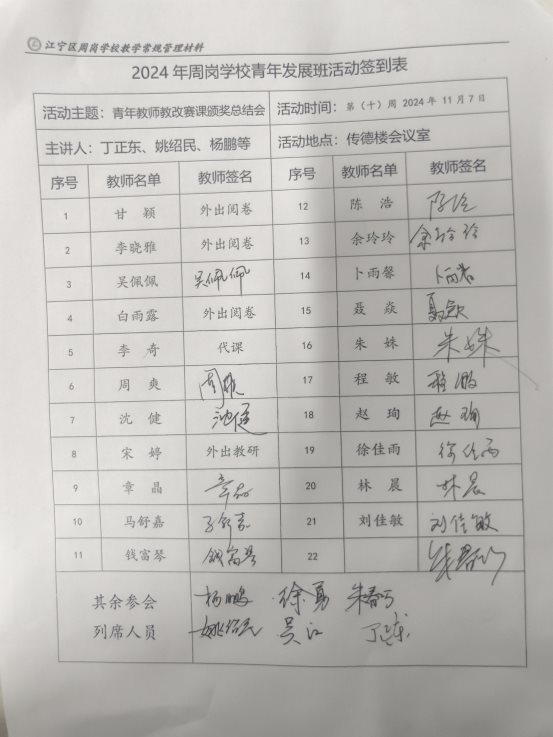 江宁区周岗学校教学常规管理材料
2024年周岗学校青年发展班活动签到表
活动主题：青年教师教改赛课颁奖总结会 活动时间：第（十）周 2024年11月7日
主讲人：丁正东、姚绍民、杨鹏等 活动地点：传德楼会议室
序号 教师名单 教师签名 序号 教师名单 教师签名
1 甘颖 外出阅卷 12 陈浩 陈浩
2 李晓雅 外出阅卷 13 余玲玲 余玲玲
3 吴佩佩 吴佩佩 14 卜雨馨 卜雨馨
4 白雨露 外出阅卷 15 聂焱 聂焱
5 李奇 代课 16 朱姝 朱姝
6 周爽 周爽 17 程敏 程敏
7 沈健 沈健 18 赵珣 赵珣
8 宋婷 外出教研 19 徐佳雨 徐佳雨
9 章晶 章晶 20 林晨 林晨
10 马舒嘉 马舒嘉 21 刘佳敏 刘佳敏
11 钱富琴 钱富琴 22
其余参会 杨鹏 徐勇
列席人员 姚绍民 吴江 丁正东